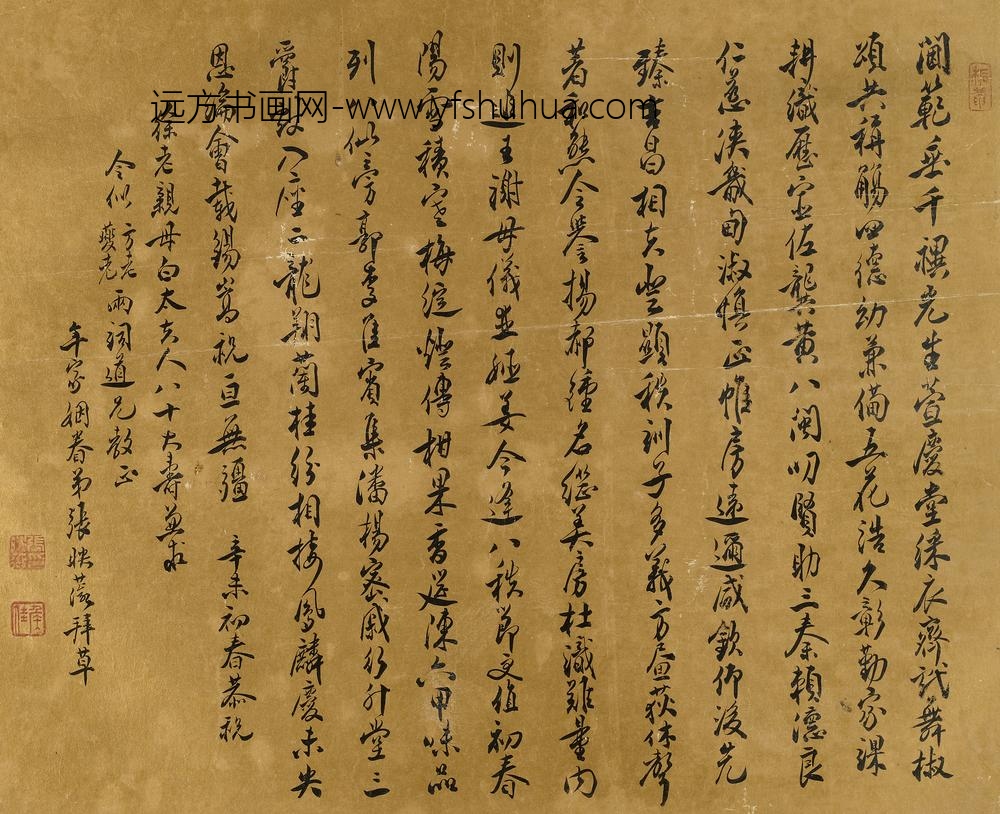 閫範垂千禩尧生萱慶堂綵衣齊試舞椒
頌共稱觴四德幼兼備五花浩久彰勤家課
耕織歷宦佐龔黄八閩叨賢助三秦賴德良
仁慈浹畿甸淑慎正帷房遠邇咸欽仰後先
臻吉昌相夫登顯秩訓子多義方晝荻休聲
著和熊令譽揚郝鍾名継美房杜識難量内
則追王謝母儀並姙姜今逢八秩節更值初春
陽雪積寒梅綻燈傳柑果香筵陳六甲味品
列八仙旁郭李佳賓集潘楊密戚行升堂三
爵致入座二龍翔蘭桂紛相接鳳麟慶未央
恩綸會載錫嵩祝亘無疆 辛未初春恭祝
徐老親母白太夫人八十大壽兼求
令似 方老 燮老 兩詞道兄教正
年家姻眷弟張映蕊拜草
远方书画网-www.yfshuhua.com